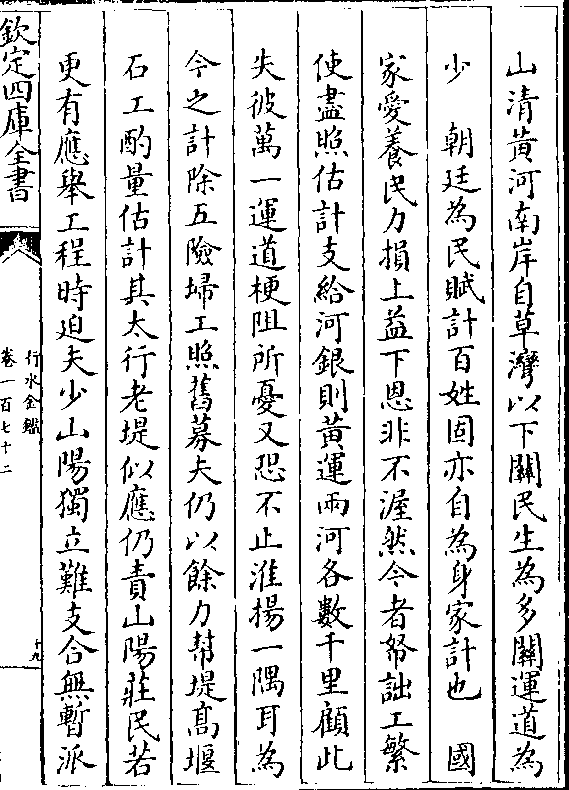 山清黄河南岸自草灣以下關民生為多關運道為
少　朝廷為民賦計百姓固亦自為身家計也　國
家愛養民力損上益下恩非不渥然今者帑詘工繁
使盡照估計支給河銀則黄運兩河各數千里顧此
失彼萬一運道梗阻所憂又恐不止淮揚一隅耳為
今之計除五險埽工照舊募夫仍以餘力幫堤髙堰
石工酌量估計其太行老堤似應仍責山陽莊民若
更有應舉工程時迫夫少山陽獨立難支合無暫派
欽定四庫全書
行水金鑑
卷一百七十二
十九